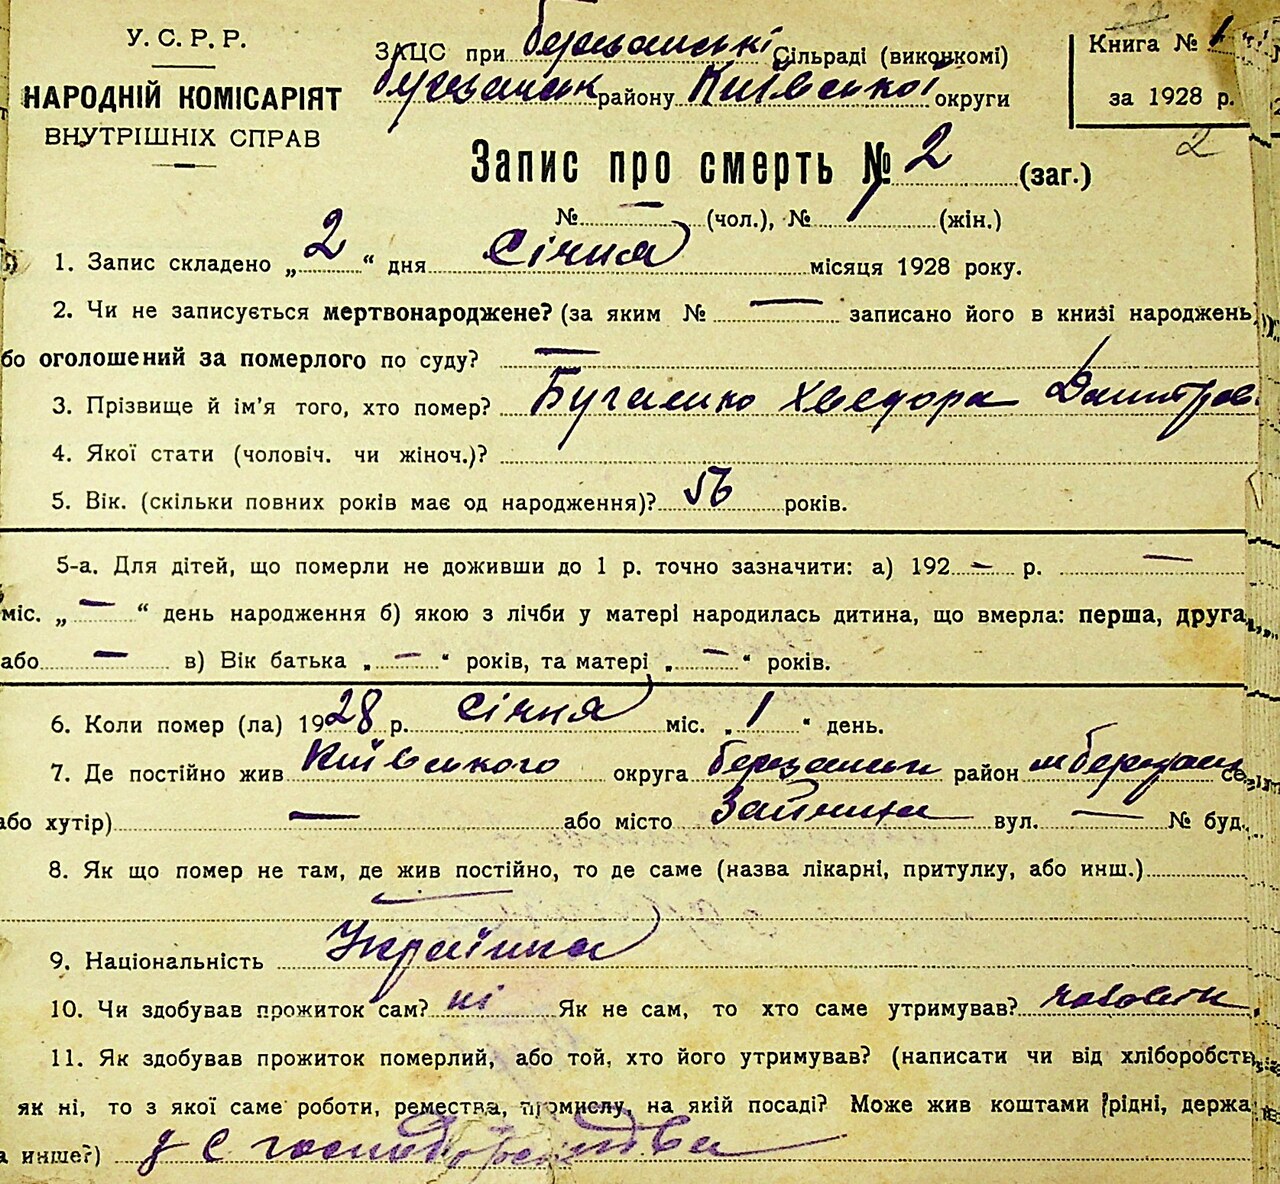 У. С. Р. Р.
НАРОДНІЙ КОМІСАРІЯТ
ВНУТРІШНІХ СПРАВ
ЗАЦС при Сільраді (виконкомі)
району Київської округи
Книга № 1
за 1928 р.
2
Запис про смерть № 2 (заг.)
№ — (чол.), № 1 (жін.)
1. Запис складено „2“ дня Січня місяця 1928 року.
2. Чи не записується мертвонароджене? (за яким № — записано його в книзі народжень,
бо оголошений за померлого по суду? —
3. Прізвище й ім'я того, хто помер? Бугаенко Хведора Дмитров.
4. Якої стати (чоловіч. чи жіноч.)?
5. Вік. (скільки повних років має од народження)? 56 років.
5-а. Для дітей, що померли не доживши до 1 р. точно зазначити: а) 192 — р. —
міс. „ — “ день народження б) якою з лічби у матері народилась дитина, що вмерла: перша, друга,
або — в) Вік батька „ — “ років, та матері „ — “ років.
6. Коли помер (ла) 1928 р. Січня міс. „ 1 “ день.
7. Де постійно жив Київського округа район
або хутір) — або місто вул. — № буд.
8. Як що помер не там, де жив постійно, то де саме (назва лікарні, притулку, або инш.)
—
9. Національність Українка
10. Чи здобував прожиток сам? ні Як не сам, то хто саме утримував? чоловік
11. Як здобував прожиток померлий, або той, хто його утримував? (написати чи від хліборобств
як ні, то з якої саме роботи, ремества, промислу, на якій посаді? Може жив коштами рідні, держа
а инше?) з С господорства